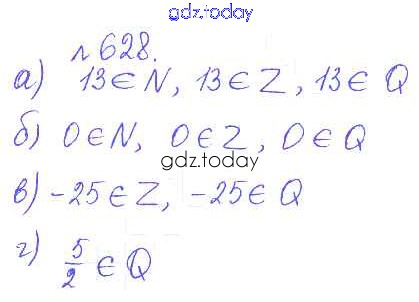 gdz.today
№628.
а) 13 ∈ N, 13 ∈ Z, 13 ∈ Q
б) 0 ∈ N, 0 ∈ Z, 0 ∈ Q
gdz.today
в) -25 ∈ Z, -25 ∈ Q
г) 5/2 ∈ Q